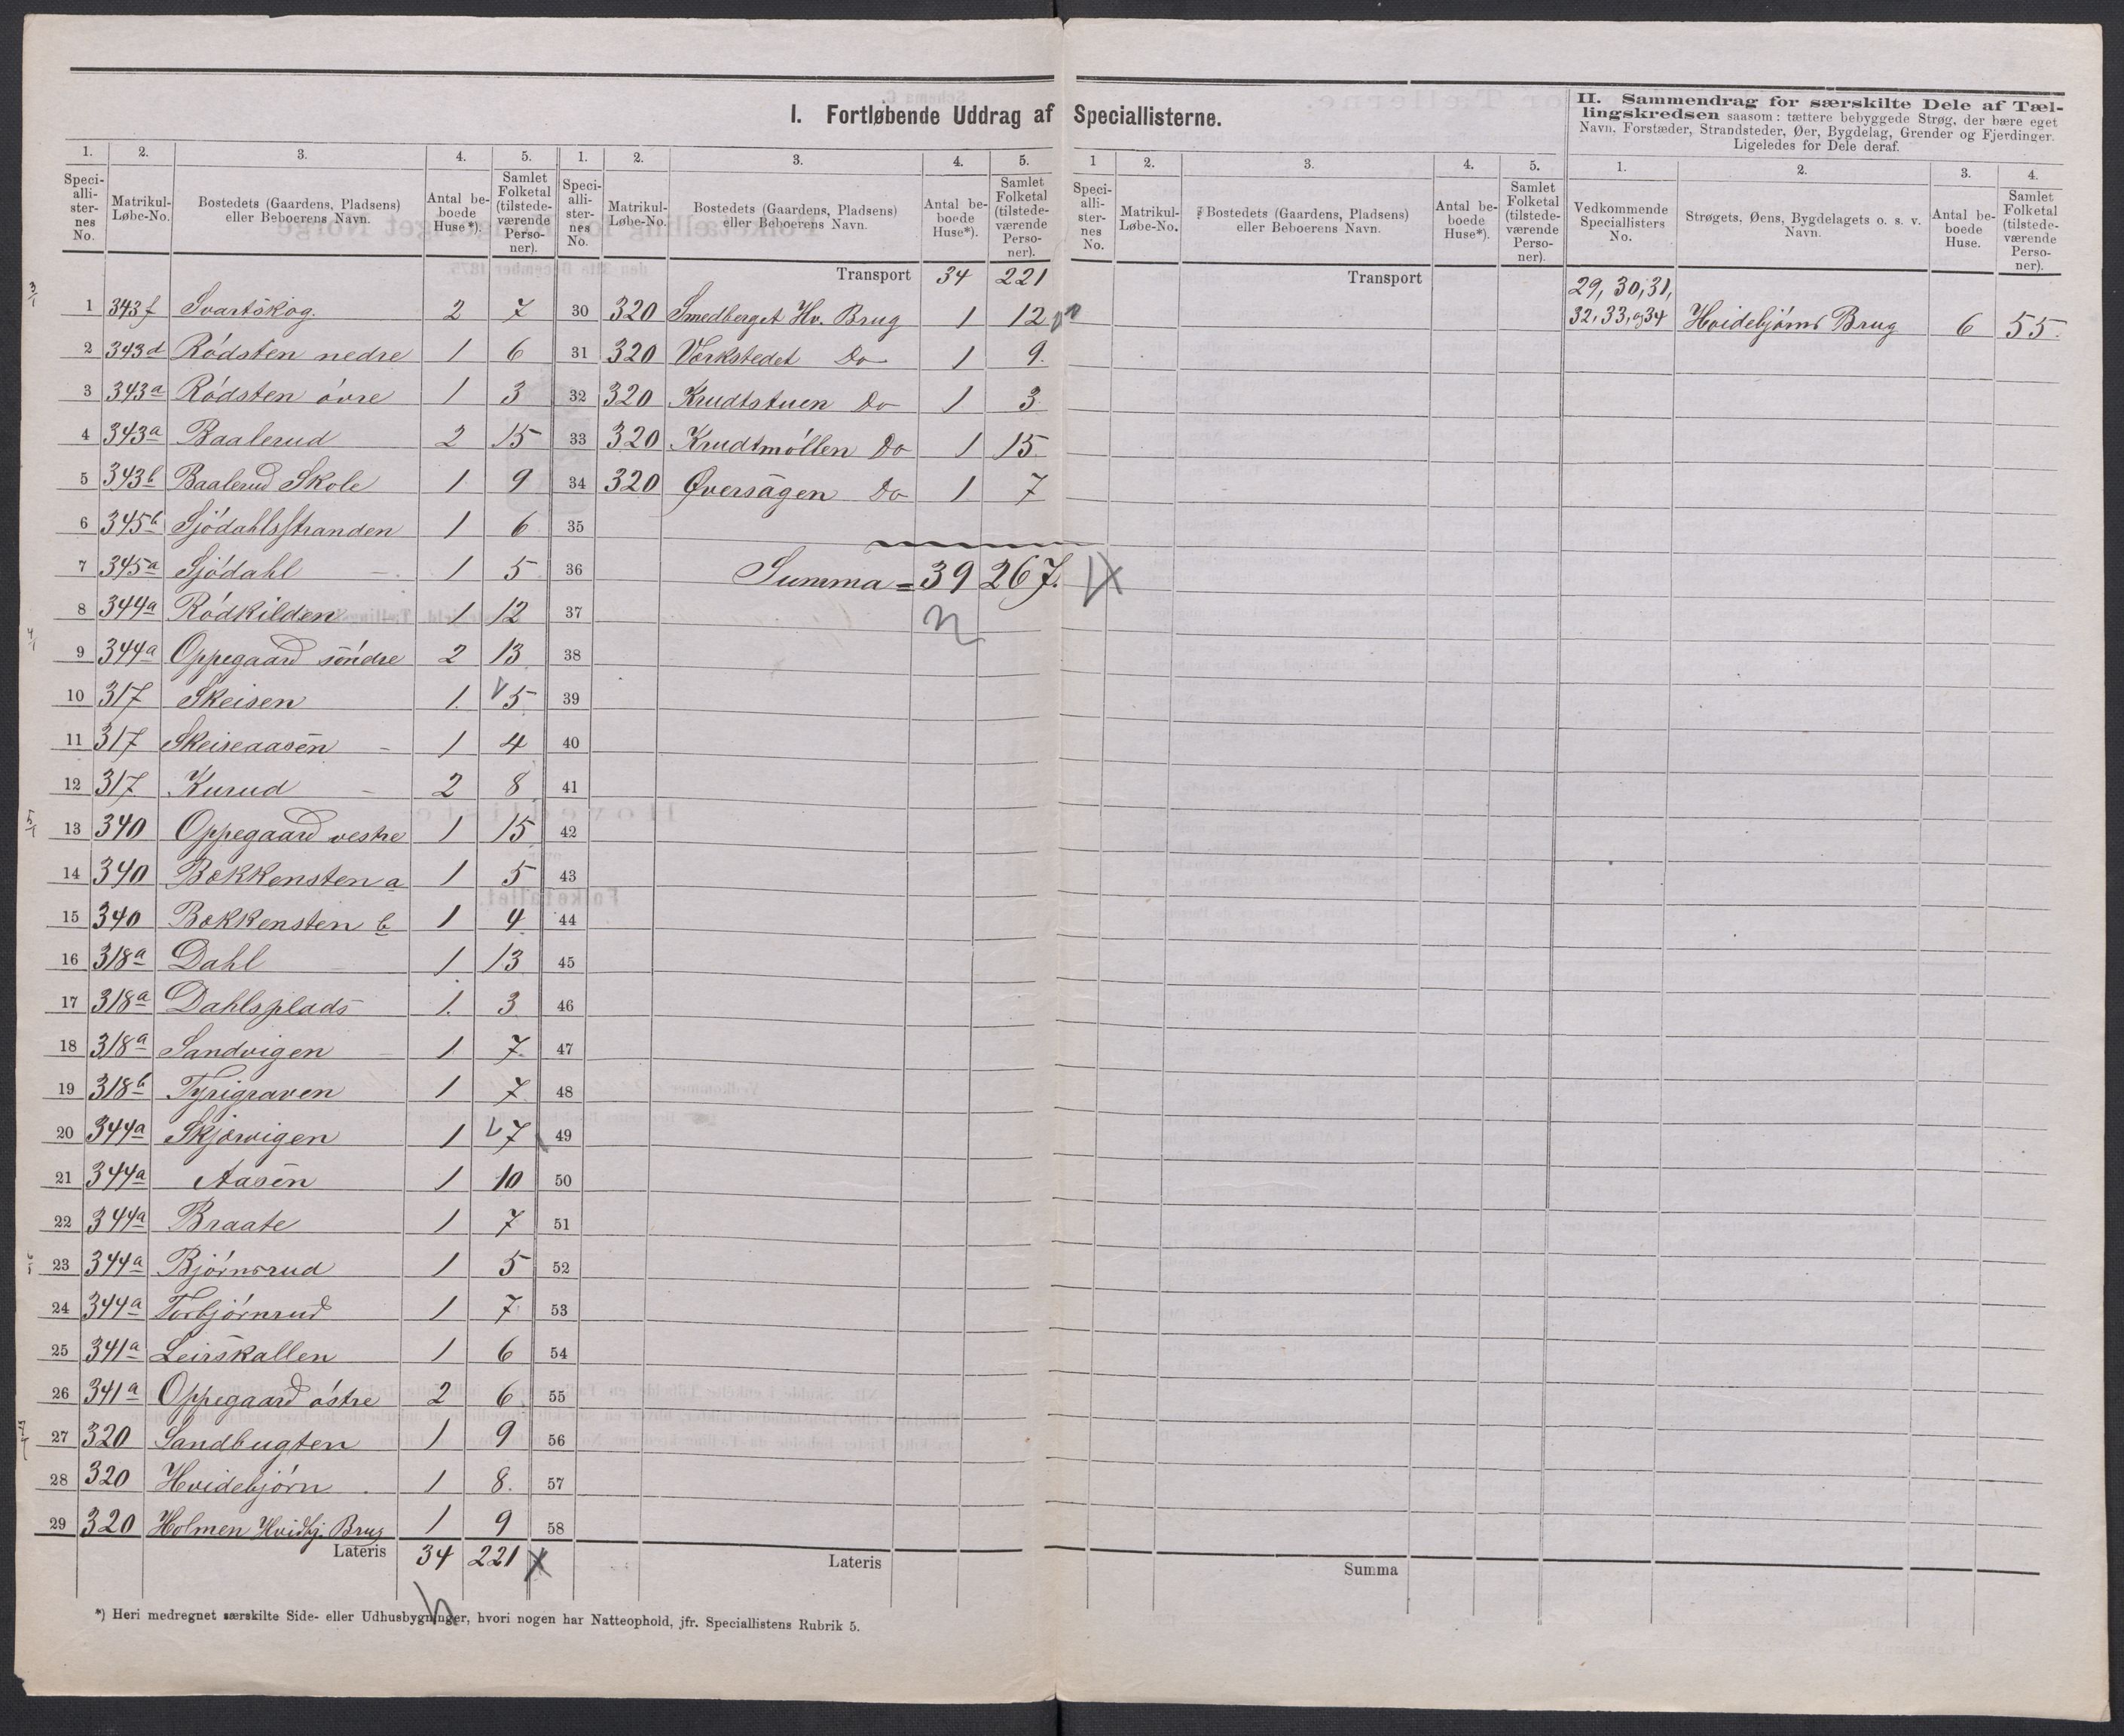 I. Fortløbende Uddrag af Speciallisterne.
II. Sammendrag for særskilte Dele af Tæl-
lingskredsen saasom: tættere bebyggede Strøg, der bære eget
Navn, Forstæder, Strandsteder, Øer, Bygdelag, Grender og Fjerdinger.
Ligeledes for Dele deraf.
1. 2. 3. 4. 5.
Speciallisternes No. Matrikul-Løbe-No. Bostedets (Gaardens, Pladsens) eller Beboerens Navn. Antal beboede Huse*). Samlet Folketal (tilstedeværende Personer).
1 343f Svartskog. 2 7
2 343d Rødsten nedre 1 6
3 343a Rødsten øvre 1 3
4 343a Baalerud 2 15
5 343b Baalerud Skole 1 9
6 345b Sjødahlsstranden 1 6
7 345a Sjødahl 1 5
8 344a Rødkilden 1 12
9 344a Oppegaard søndre 2 13
10 317 Skeisen 1. 5
11 317 Skeiseaasen 1 4
12 317 Kurud 2 8
13 340 Oppegaard vestre 1 15
14 340 Bekkensten a 1 5
15 340 Bekkensten b 1 4
16 318a Dahl 1 13
17 318a Dahlsplads 1. 3
18 318a Sandvigen 1 7.
19 318b Tyrigraven 1 7
20 344a Skjærvigen 1 7
21 344a Aasen 1 10
22 344a Braate 1 7
23 344a Bjørnsrud 1 5
24 344a Torbjørnrud 1 7
25 341a Leirskallen 1 6
26 341a Oppegaard østre 2 6
27 320 Sandbugten 1 9
28 320 Hvidebjørn 1 8.
29 320 Holmen Hvidbj. Brug 1 9
Lateris 34 221
1. 2. 3. 4. 5.
Speciallisternes No. Matrikul-Løbe-No. Bostedets (Gaardens, Pladsens) eller Beboerens Navn. Antal beboede Huse*). Samlet Folketal (tilstedeværende Personer).
Transport 34 221
30 320 Smedberget Hv. Brug 1 12
31 320 Værkstedet Do 1 9.
32 320 Krudtstuen Do 1 3
33 320 Krudtmøllen Do 1 15
34 320 Øversagen Do 1 7
35
36 Summa = 39 267.
37
38
39
40
41
42
43
44
45
46
47
48
49
50
51
52
53
54
55
56
57
58
Lateris
1 2. 3. 4. 5.
Speciallisternes No. Matrikul-Løbe-No. Bostedets (Gaardens, Pladsens) eller Beboerens Navn. Antal beboede Huse*). Samlet Folketal (tilstedeværende Personer).
Transport
Summa
1. 2. 3. 4.
Vedkommende Speciallisters No. Strøgets, Øens, Bygdelagets o. s. v. Navn. Antal beboede Huse. Samlet Folketal (tilstedeværende Personer).
29, 30, 31,
32, 33, og 34 Hvidebjørns Brug 6 55.
*) Heri medregnet særskilte Side- eller Udhusbygninger, hvori nogen har Natteophold, jfr. Speciallistens Rubrik 5.